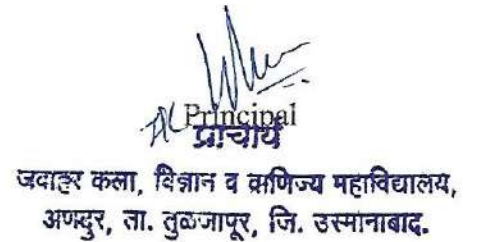 Principal
प्राचार्य
जवाहर कला, विज्ञान व वाणिज्य महाविद्यालय,
अणदुर, ता. तुळजापूर, जि. उस्मानाबाद.